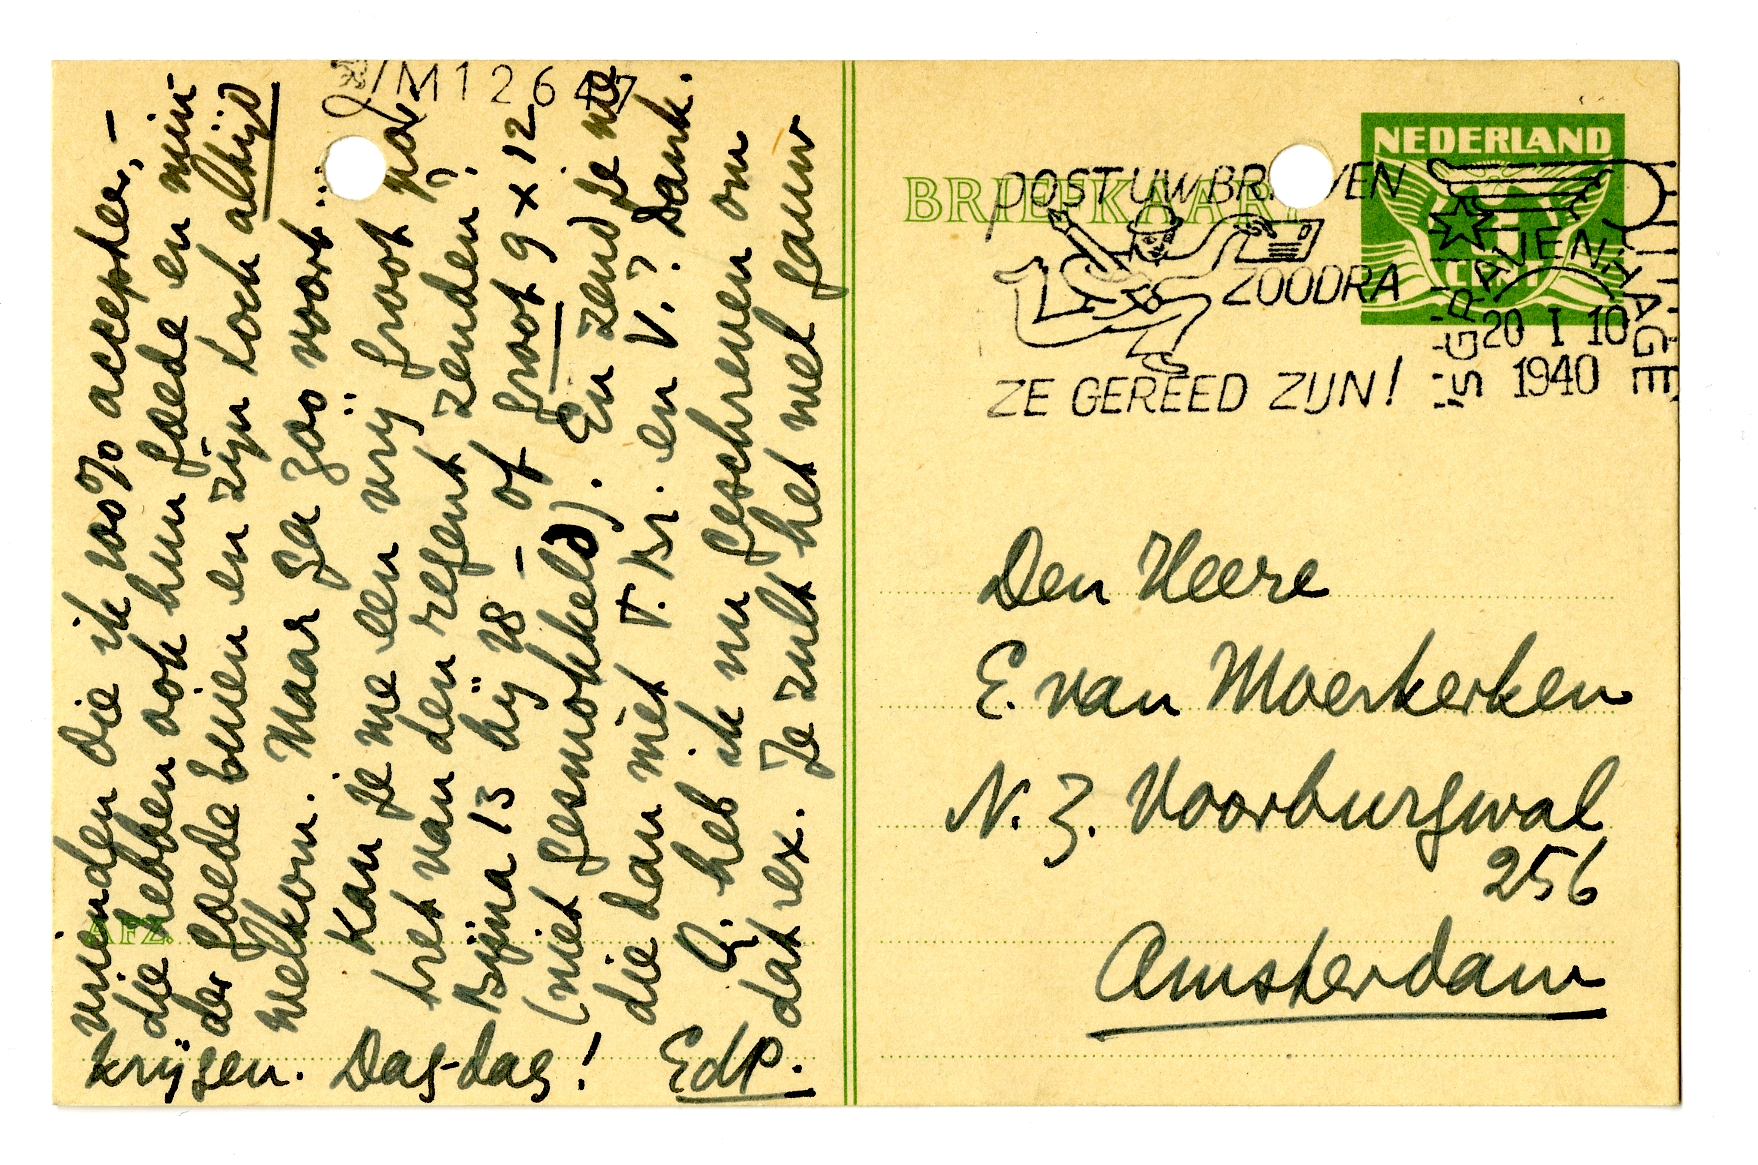 vrienden die ik 100% accepteer, –
die hebben ook hun goede en min-
der goede buien en zijn toch altijd
welkom. Maar ga zoo voort...
Kan je me een vrij groot por-
tret van den regent zenden?
Bijna 13 bij 18 – of groot 9 x 12
(niet gesmokkeld). En zend je me
die dan mèt V. Br. en V.? Dank.
Q. heb ik nu geschreven om
dat ex. Je zult het wel gauw
krijgen. Dag-dag! EdP.
AFZ.
M 12647
BRIEFKAART
NEDERLAND
CENT
POST UW BRIEVEN
ZOODRA
ZE GEREED ZIJN!
'S-GRAVENHAGE
20 I 10
1940
Den Heere
E. van Moerkerken
N. Z. Voorburgwal
256
Amsterdam